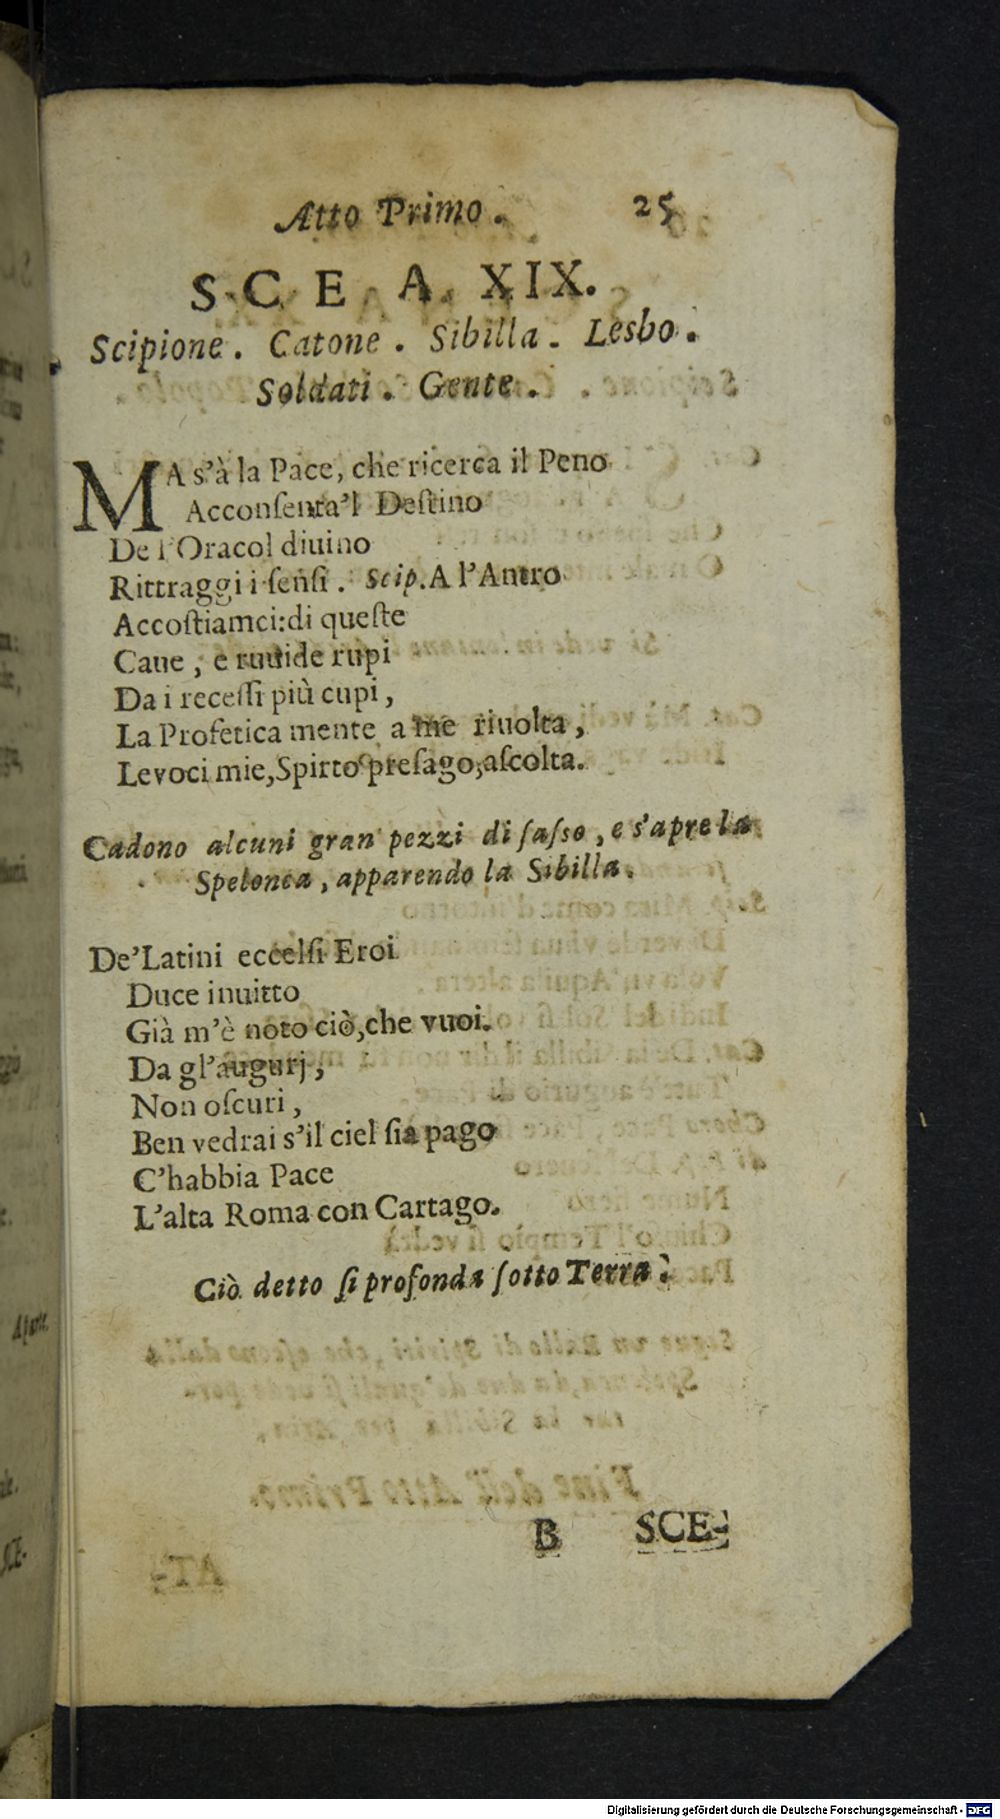 Atto Primo. 25
SCE A XIX.
Scipione. Catone. Sibilla. Lesbo.
Soldati. Gente.
MA s'à la Pace, che ricerca il Peno
Acconſenta'l Deſtino
De l'Oracol diuino
Rittraggi i ſenſi. Scip. A l'Antro
Accoſtiamci: di queſte
Caue, e ruuide rupi
Da i receſſi più cupi,
La Profetica mente a me riuolta,
Le voci mie, Spirto preſago, aſcolta.
Cadono alcuni gran pezzi di ſaſſo, e s'apre la
Spelonca, apparendo la Sibilla.
De' Latini eccelſi Eroi
Duce inuitto
Già m'è noto ciò, che vuoi.
Da gl'augurj,
Non oſcuri,
Ben vedrai s'il ciel ſia pago
C'habbia Pace
L'alta Roma con Cartago.
Ciò detto ſi profonda ſotto Terra.
B SCE-
Digitalisierung gefördert durch die Deutsche Forschungsgemeinschaft - DFG